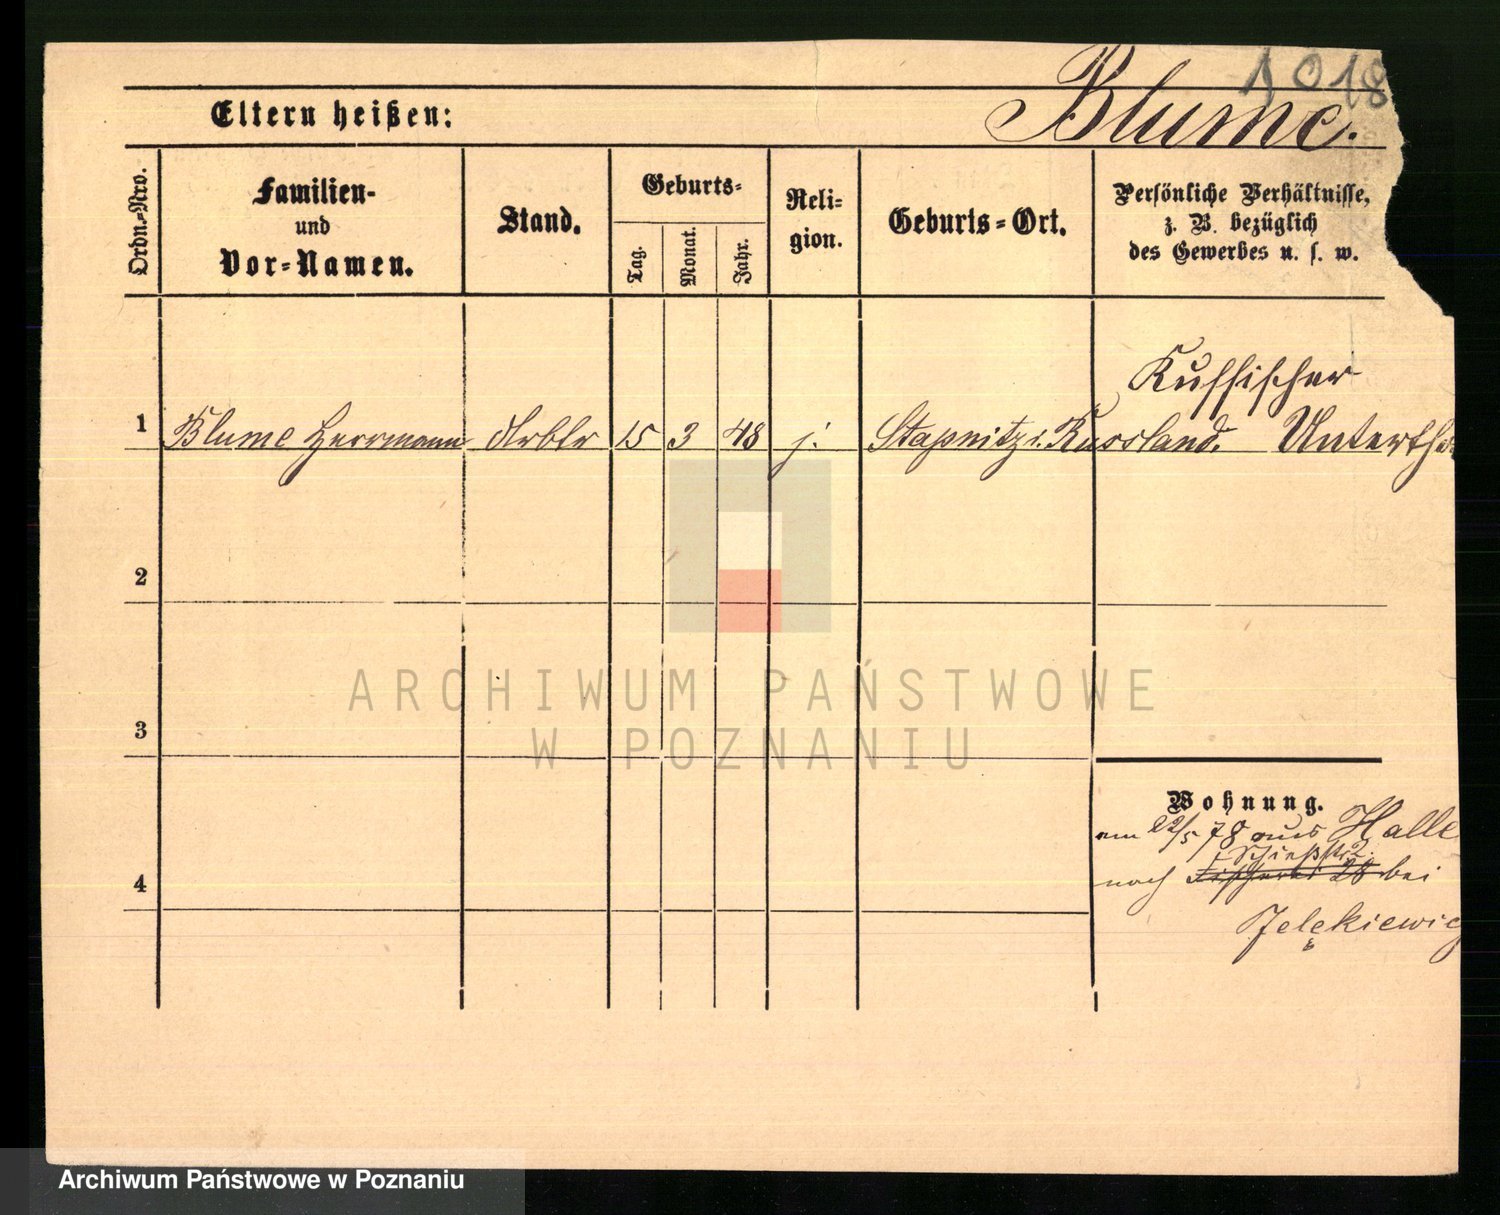 1018
Blume.
Eltern heißen:
Ordn.-Nro.
Familien-
und
Vor-Namen.
Stand.
Geburts-
Tag.
Monat.
Jahr.
Reli-
gion.
Geburts-Ort.
Persönliche Verhältnisse,
z. B. bezüglich
des Gewerbes u. s. w.
Russischer
1 Blume Herrmann Arbtr 15 3 48 j. Stapnitz i. Russland. Unterth
2
3
4
Wohnung.
am 22/5 78 aus Halle
Schießstr 2.
nach Fischerei 28 bei
ARCHIWUM PAŃSTWOWE
W POZNANIU
Archiwum Państwowe w Poznaniu